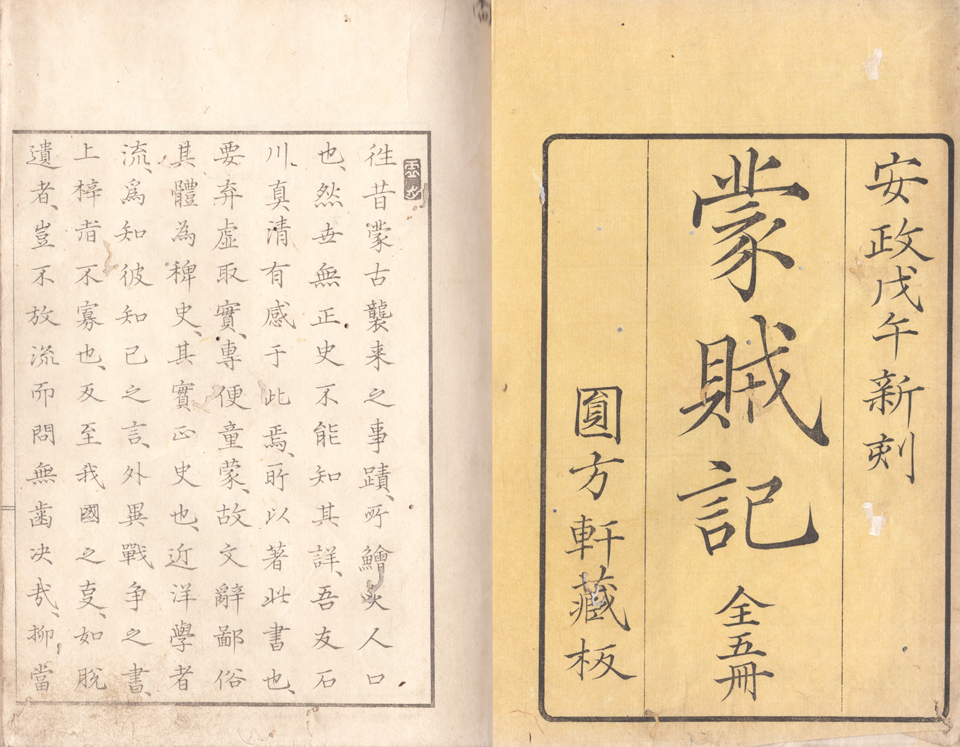 安政戊午新刻
蒙賊記
全五冊
圓方軒藏板
徃昔蒙古襲来之事蹟、所鱠炙人口
也、然世無正史不能知其詳、吾友石
川真清有感于此焉、所以著此書也、
要弃虛取實、專便童蒙、故文辭鄙俗
其體為稗史、其實正史也、近洋學者
流、為知彼知己之言、外異戰争之書、
上梓者不寡也、及至我國之事、如脫
遺者、豈不放流而問無齒决哉、抑當